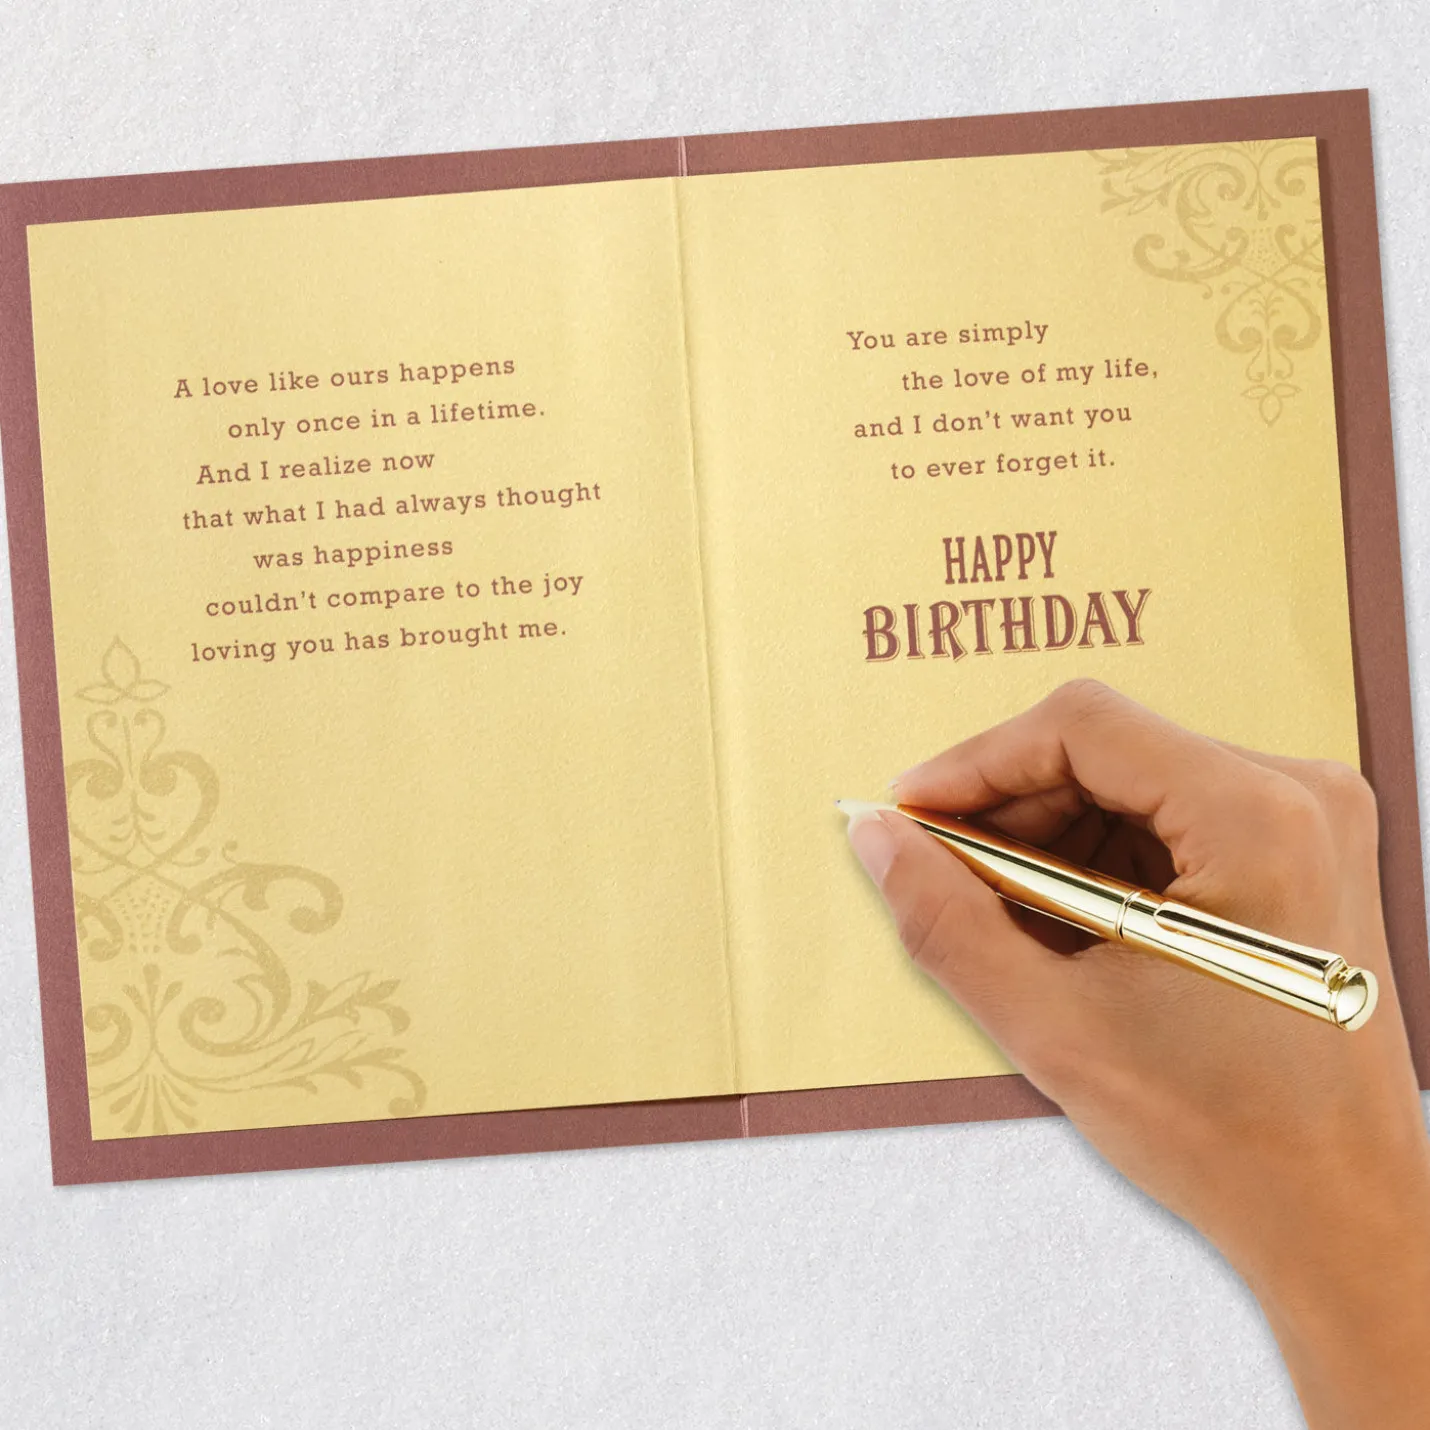 A love like ours happens
only once in a lifetime.
And I realize now
that what I had always thought
was happiness
couldn't compare to the joy
loving you has brought me.
You are simply
the love of my life,
and I don't want you
to ever forget it.
HAPPY
BIRTHDAY